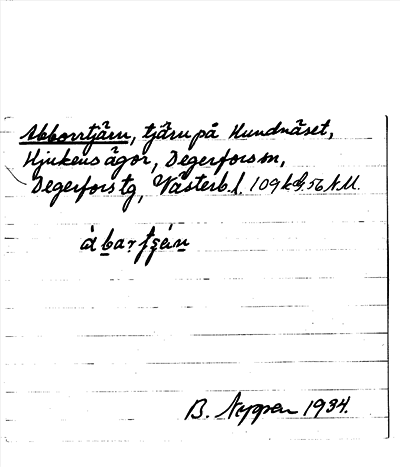 Abborrtjärn, tjärn på Hundnäset,
Hjukens ägor, Degerfors sn,
Degerfors tg, Västerb. l. 109 56 N.M.
B. Nyman 1934.